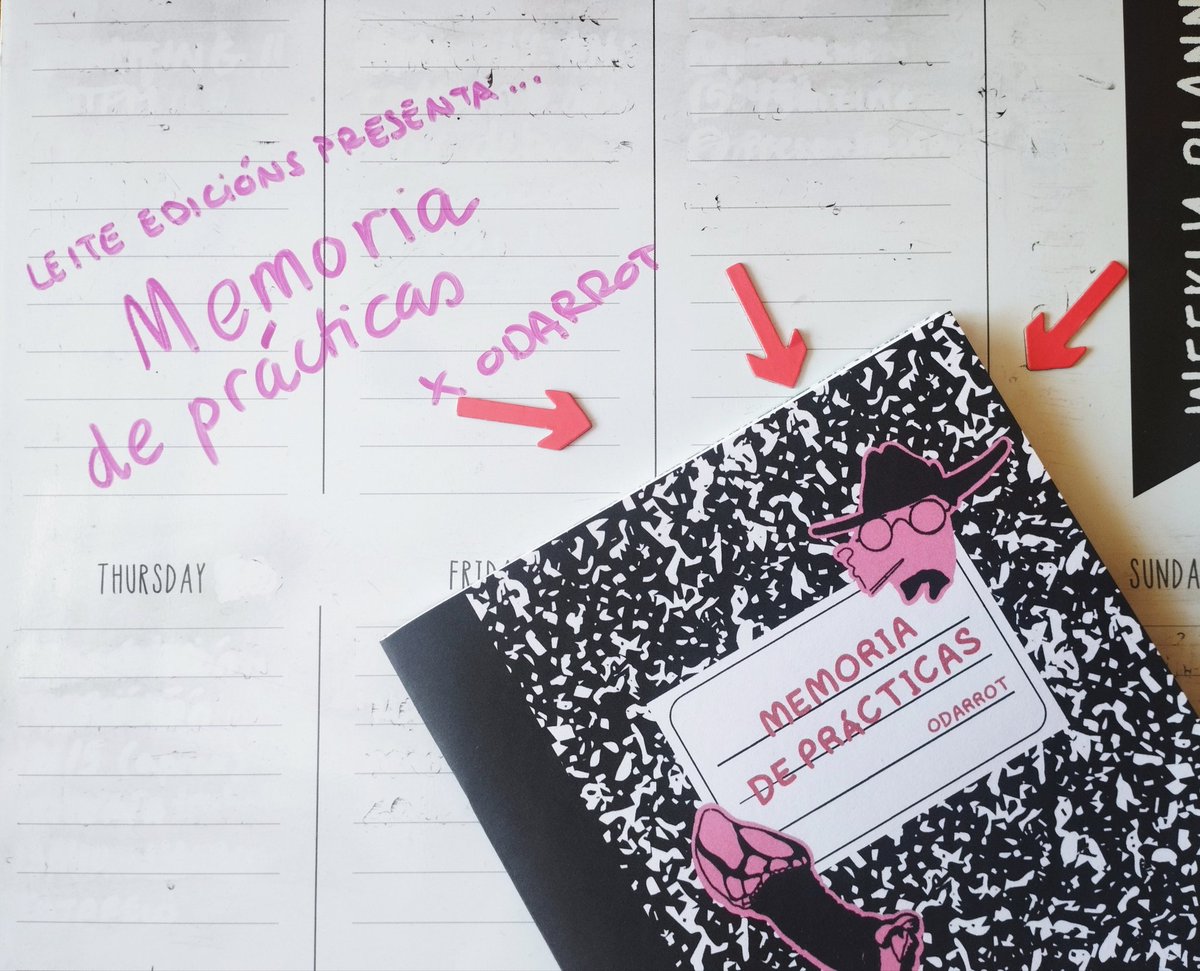 LEITE EDICIÓNS PRESENTA...
Memoria
de prácticas
x ODARROT
WEEKLY PLANN
THURSDAY
FRID
SUNDA
MEMORIA
DE PRÁCTICAS
ODARROT